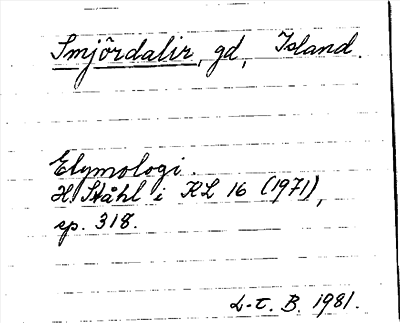 Smjördalir, gd, Island.
Etymologi.
H Ståhl i KL 16 (1971),
sp. 318.
L-E. B. 1981.